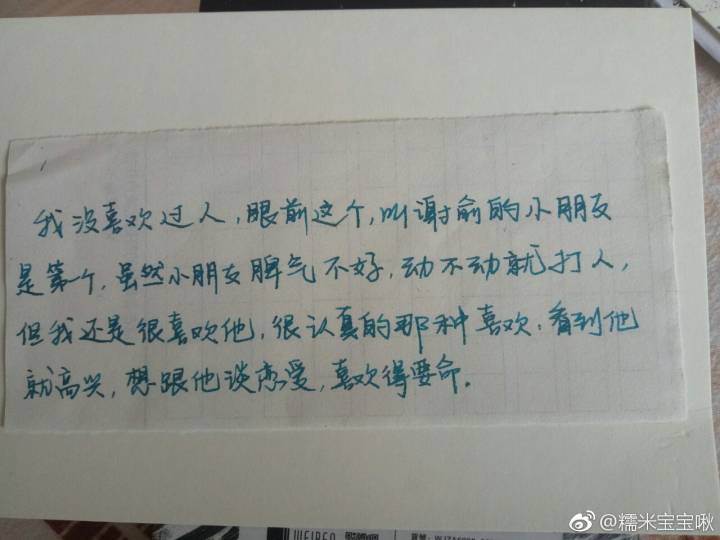 我没喜欢过人,眼前这个,叫谢俞的小朋友
是第个,虽然小朋友脾气不好,动不动就打人,
但我还是很喜欢他,很认真的那种喜欢.看到他
就高兴,想跟他谈恋爱,喜欢得要命。
WEIBO
@糯米宝宝啾